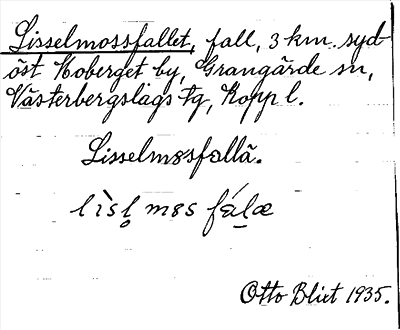 Lisselmossfallet, fall, 3 km. syd-
öst Moberget by, Grangärde sn,
Västerbergslags tg, Kopp l.
Lisselmɞsfallä.
lìsl̥ mɞs fálæ
Otto Blixt 1935.